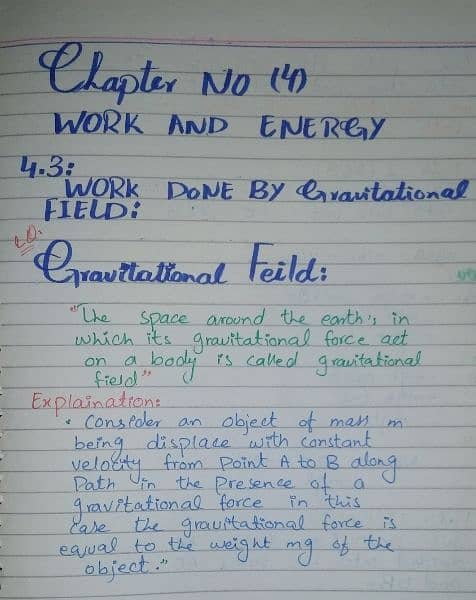 Chapter No (4)
WORK AND ENERGY
4.3:
WORK DONE BY Gravitational
FIELD:
Gravitational Feild:
"The space around the earth's in
which its gravitational force act
on a body is called gravitational
field"
Explaination:
• Consider an object of mass m
being displace with constant
velocity from Point A to B along
Path in the Presence of a
gravitational force in this
case the gravitational force is
equal to the weight mg of the
object."